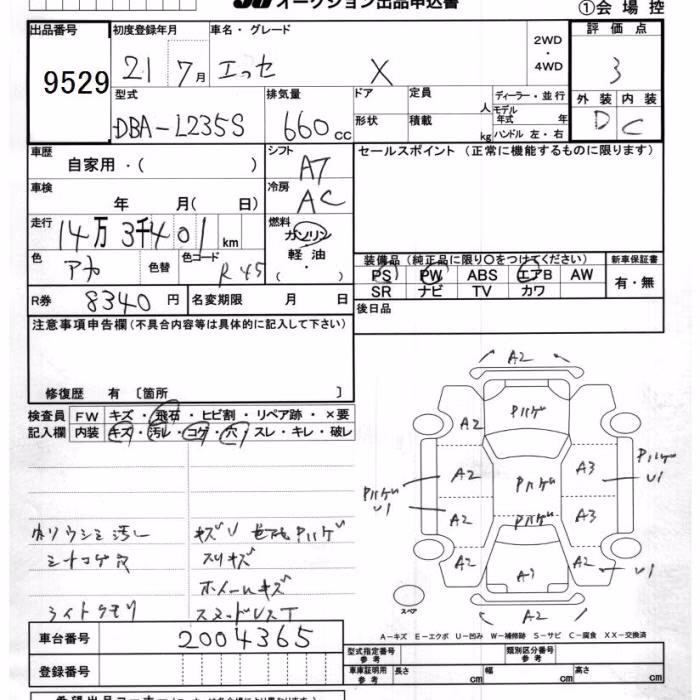 オークション出品申込書
①会場控
出品番号 初度登録年月 車名・グレード 2WD・4WD 評価点
9529 21 7月 エッセ X 3
型式 排気量 ドア 定員 人 ディーラー・並行 外装 内装
DBA-L235S 660cc 形状 積載 kg モデル年式 年 ハンドル 左・右 D C
車歴 自家用・( ) シフト AT セールスポイント (正常に機能するものに限ります)
車検 年 月( 日) 冷房 AC
走行 14万3千401km 燃料 ガソリン
軽油
・( )
色 アカ 色替 色コード R45
装備品 (純正品に限り○をつけてください) 新車保証書
PS PW ABS エアB AW 有・無
SR ナビ TV カワ
R券 8340円 名変期限 月 日 後日品
注意事項申告欄(不具合内容等は具体的に記入して下さい)
修復歴 有〔箇所 〕
検査員 FW キズ・飛石・ヒビ割・リペア跡・×要
記入欄 内装 キズ・汚レ・コゲ・穴・スレ・キレ・破レ
A2
A2 Pハゲ
A2 Pハゲ A3 Pハゲ U1
Pハゲ U1
A2 Pハゲ A3
A2 A2 U1
A2
スペア
汚レ キズU Pハゲ
シートコゲ穴 スリキズ
ホイールキズ
ライトクモリ
A-キズ E-エクボ U-凹み W-補修跡 S-サビ C-腐食 XX-交換済
車台番号 2004365
登録番号
型式指定番号 参考 類別区分番号 参考
車庫証明用 参考 長さ cm 幅 cm 高さ cm